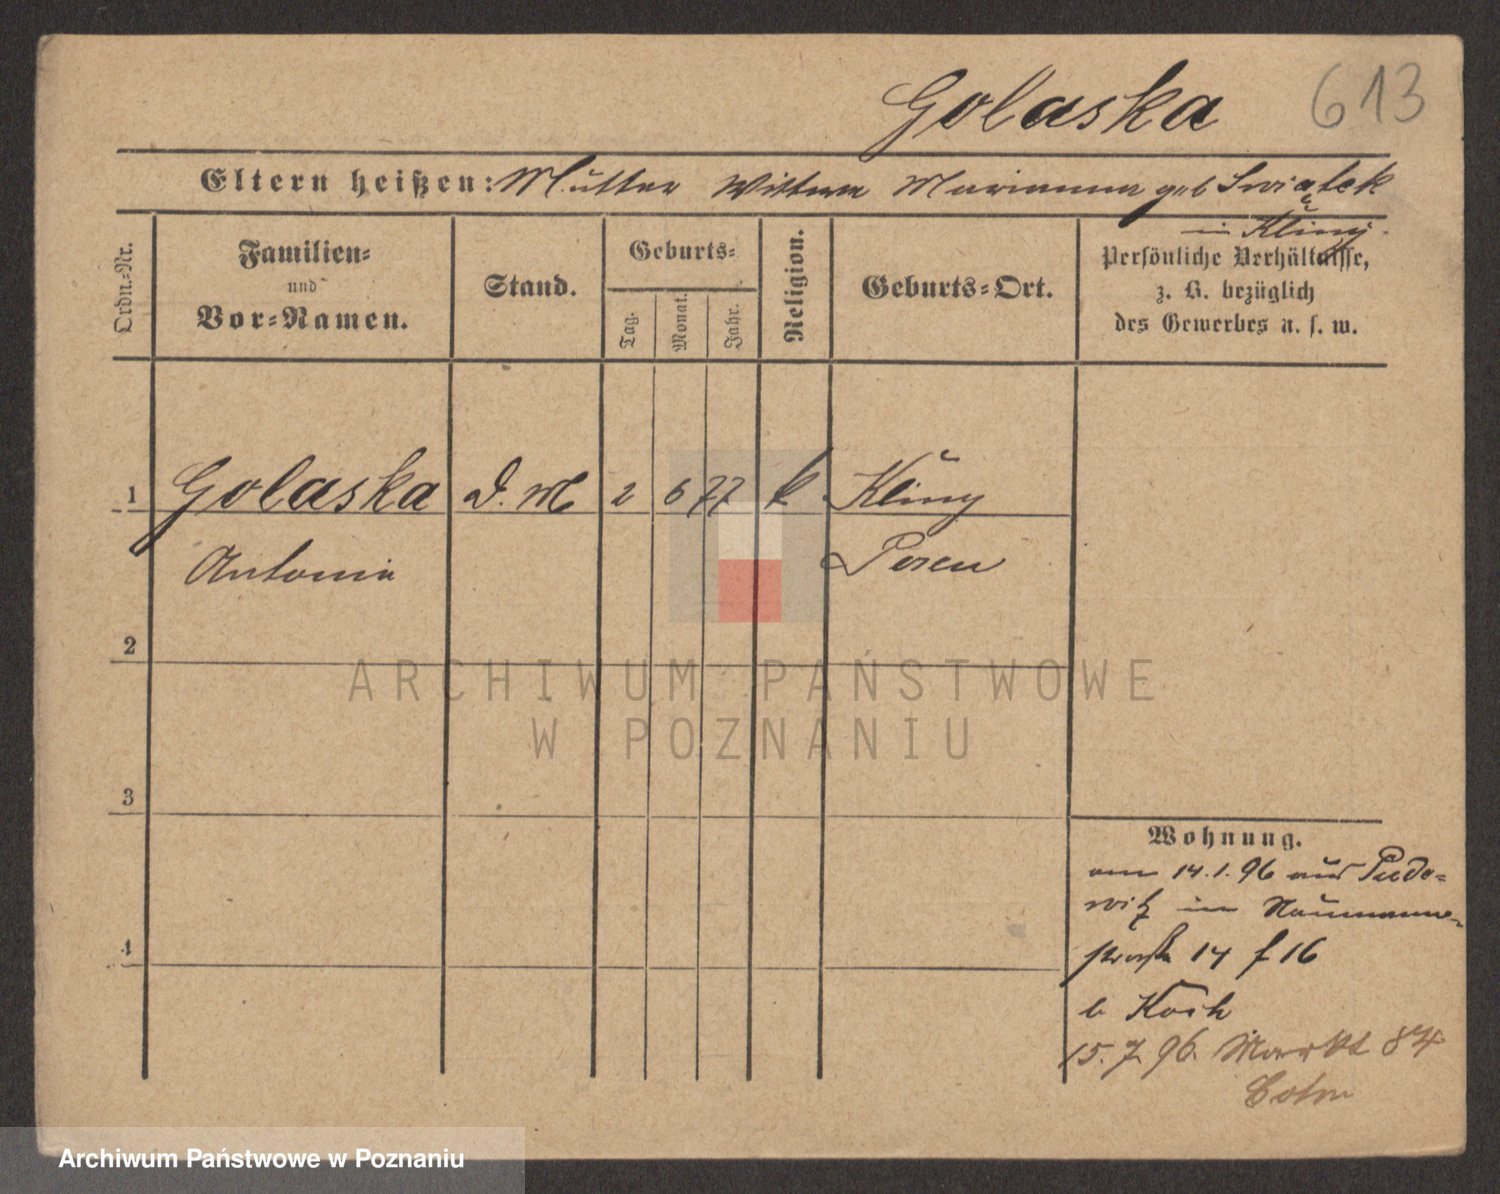 Golaska 613
Eltern heißen: Mutter Wittwe Marianna geb Swiątek
in Kliny.
Ordn.-Nr.
Familien-
und
Vor-Namen.
Stand.
Geburts-
Tag.
Monat.
Jahr.
Religion.
Geburts-Ort.
Persönliche Verhältnisse,
z. B. bezüglich
des Gewerbes u. s. w.
1 Golaska D. M 2 6 77 k Kliny
Antonie Posen
2
3
4
Wohnung.
am 14.1.96 aus Pude-
witz in Naumann-
straße 14 f 16
b Koch
15.7.96. Markt 84
Cohn
ARCHIWUM PAŃSTWOWE
W POZNANIU
Archiwum Państwowe w Poznaniu